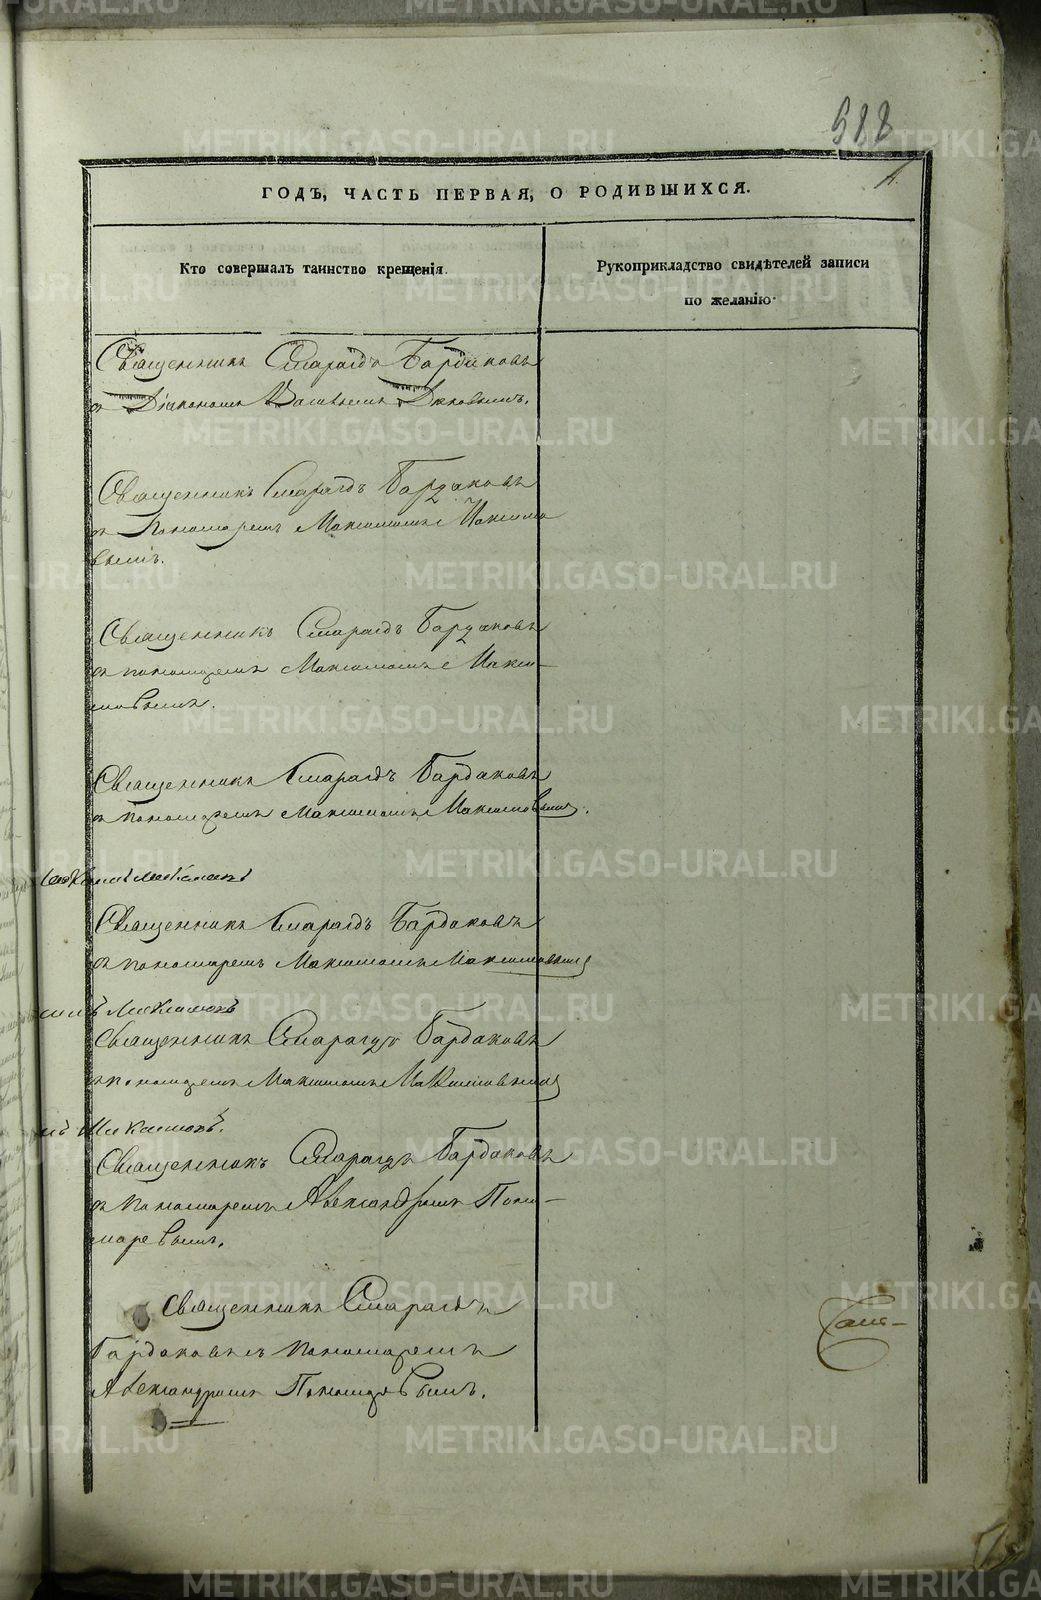 588
ГОДЪ, ЧАСТЬ ПЕРВАЯ, О РОДИВШИХСЯ.
Кто совершалъ таинство крещенія.
Рукоприкладство свидѣтелей записи
по желанію.
Священникъ Смарагдъ Бардаковъ
съ Діакономъ Васильемъ
Священникъ Смарагдъ Бардаковъ
съ Пономаремъ Максимомъ Максимо
вымъ.
Священникъ Смарагдъ Бардаковъ
съ пономаремъ Максимомъ Макси–
мовымъ.
Священникъ Смарагдъ Бардаковъ
съ пономаремъ Максимомъ Максимовымъ.
Священникъ Смарагдъ Бардаковъ
съ пономаремъ Максимомъ Максимовымъ
Священникъ Смарагдъ Бардаковъ
съ пономаремъ Максимомъ Максимовымъ
Священникъ Смарагдъ Бардаковъ
съ пономаремъ Александромъ Поно–
маревымъ.
Священникъ Смарагдъ
Бардаковъ съ пономаремъ
Александромъ Пономаревымъ.
METRIKI.GASO-URAL.RU